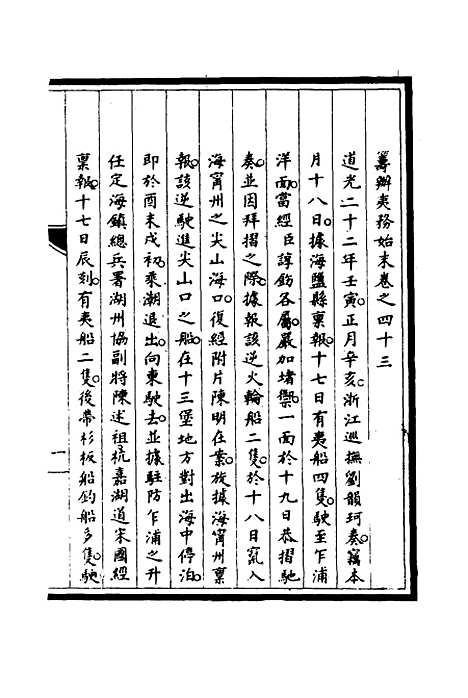 籌辦夷務始末卷之四十三
道光二十二年壬寅。正月辛亥。浙江巡撫劉韻珂奏。竊本
月十八日。據海鹽縣稟報。十七日有夷船四隻。駛至乍浦
洋面。當經臣諄飭各屬。嚴加堵禦。一面於十九日恭摺馳
奏。並因拜摺之際。據報該逆火輪船二隻。於十八日竄入
海甯州之尖山海口。復經附片陳明在案。茲據海甯州稟
報。該逆駛進尖山口之船。在十三堡地方對出海中停泊。
即於酉末戌初。乘潮退出。向東駛去。並據駐防乍浦之升
任定海鎮總兵署湖州協副將陳述祖杭嘉湖道宋國經
稟報。十七日辰刻。有夷船二隻。後帶杉板船釣船多隻。駛
一